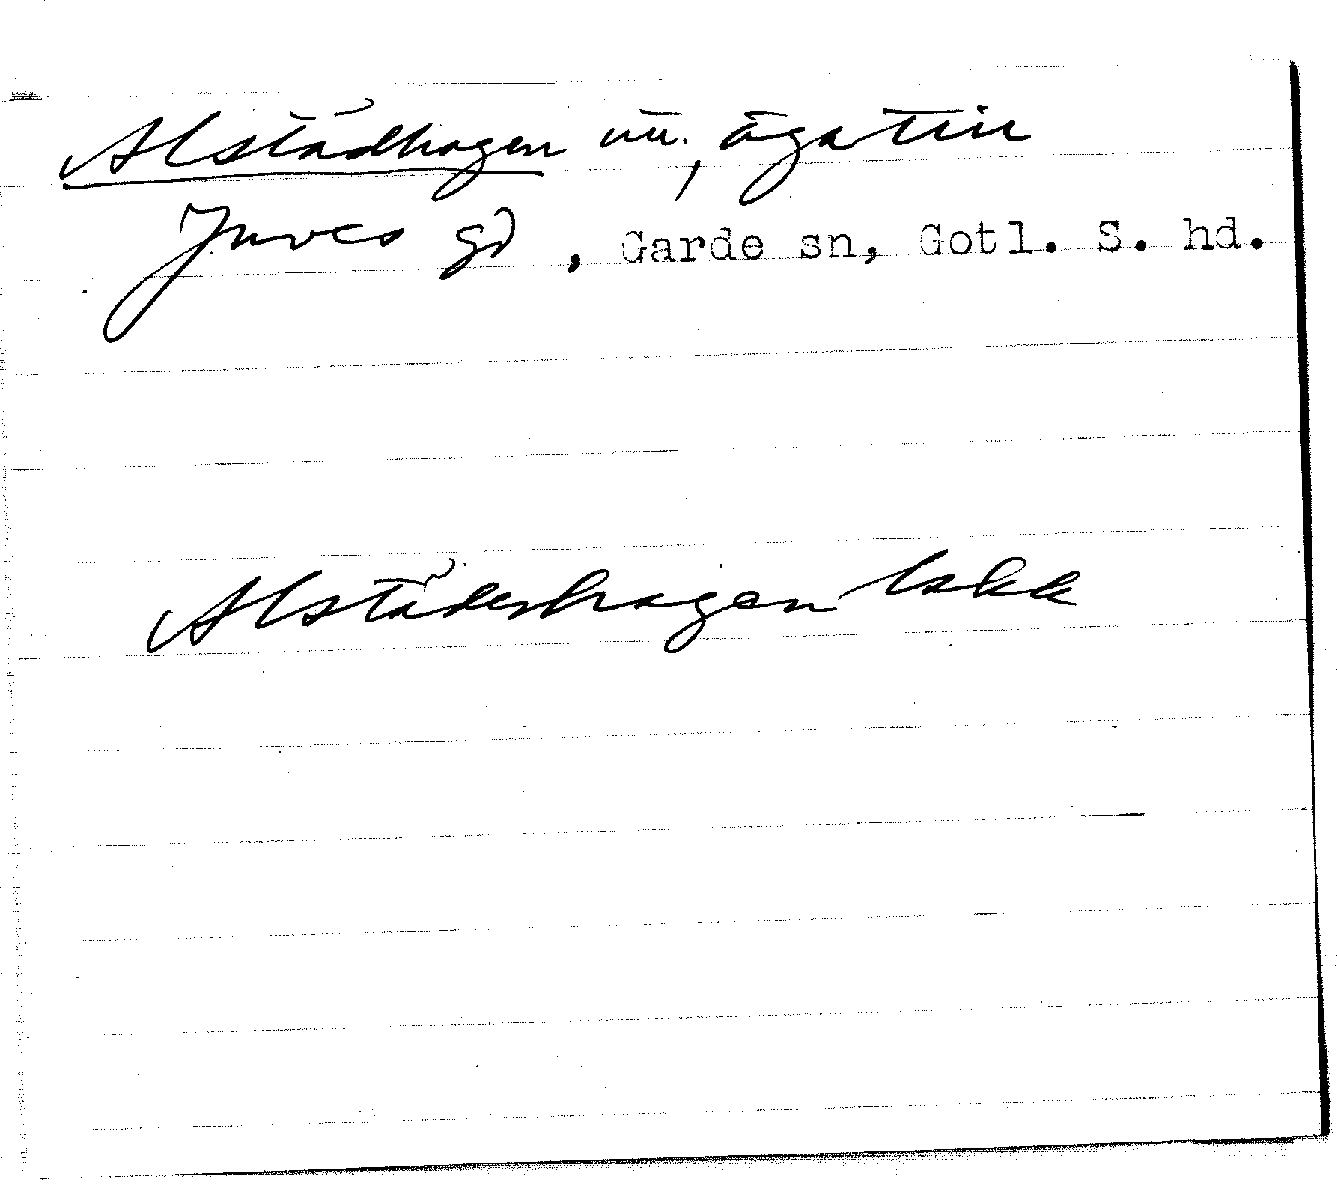 Alstädhagen nu, ägatill
Juves gd, Garde sn, Gotl. S. hd.
Alstäderhagen Lskk